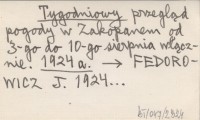 Tygodniowy przegląd
pogody w Zakopanem od
3-go do 10-go sierpnia włącz-
nie. 1924 a. → FEDORO-
WICZ J. 1924...